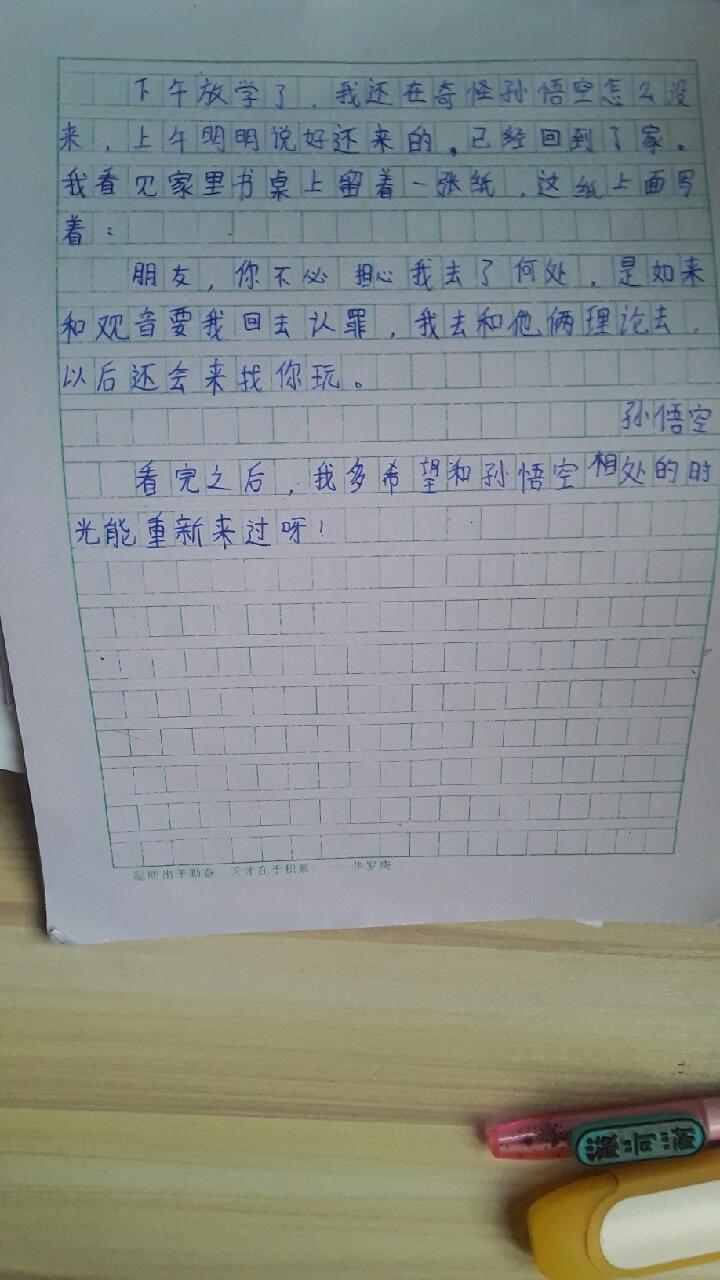 下午放学了，我还在奇怪孙悟空怎么没
来，上午明明说好还来的。已经回到了家。
我看见家里书桌上留着一张纸，这纸上面写
着：
朋友，你不必担心我去了何处，是如来
和观音要我回去认罪，我去和他俩理论去，
以后还会来找你玩。
孙悟空
看完之后，我多希望和孙悟空相处的时
光能重新来过呀！
聪明出于勤奋 天才在于积累 华罗庚